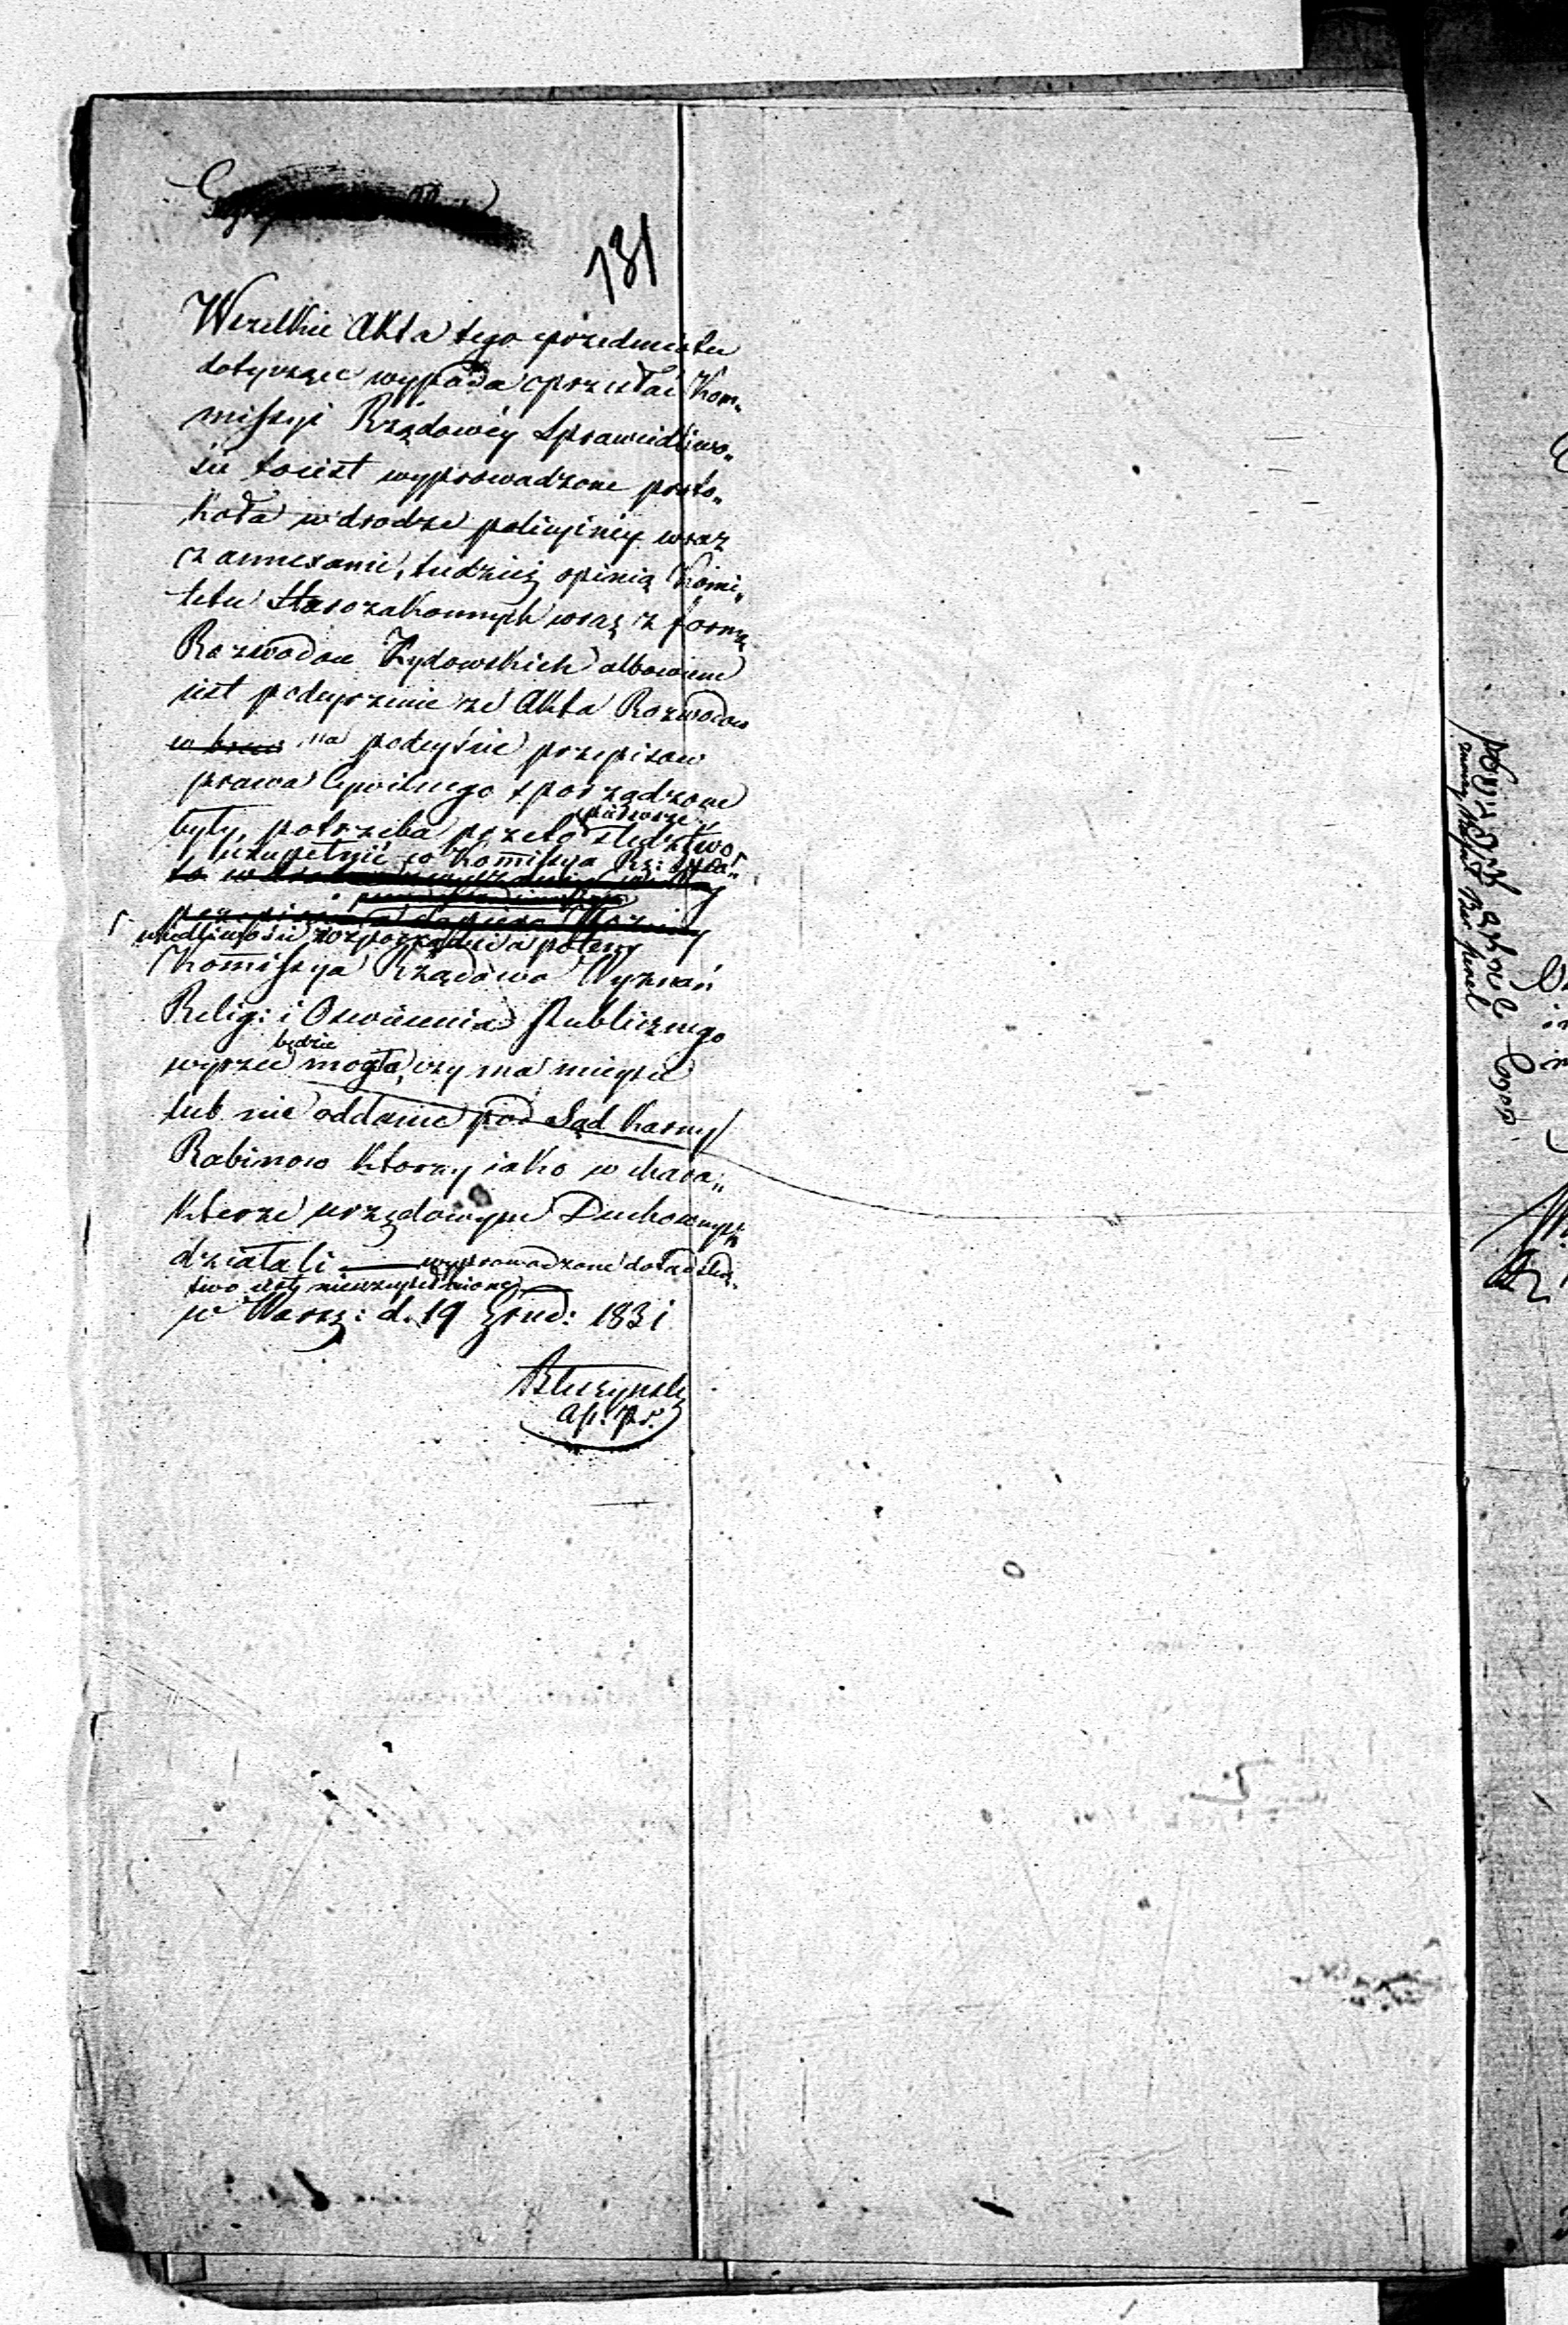 131
Wszelkie Akta tego przedmiotu
dotyczące wypada przesłać Kom„
missyi Rządowéy Sprawiedliwo„
ści toiest wyprowadzone proto„
koła w drodze policyiney wraz
z annexami, tudzież opinią Komi„
tetu Starozakonnych wraz z formą
Rozwodow Żydowskich albowiem
iest podeyrzenie że Akta Rozwodow
w brew na podeyście przepisow
prawa Cywilnego sporządzone
pierwsze
były, potrzeba przeto śledztwo
uzupełnić co Kommissya Rz: Spra„
wiedliwości rozporządzi a potem
Kommissya Rządowa Wyznań
Relig: i Oswiecenia Publicznego
będzie
wyrzec mogła, czy ma mieysce
lub nie oddanie pod Sąd karny
Rabinow ktorzy iako w chara„
kterze urzędowym Duchownych
działali — wyprowadzone dotad śledz„
two iest nieuzupełnione
w Warsz: d. 19 Grud: 1831